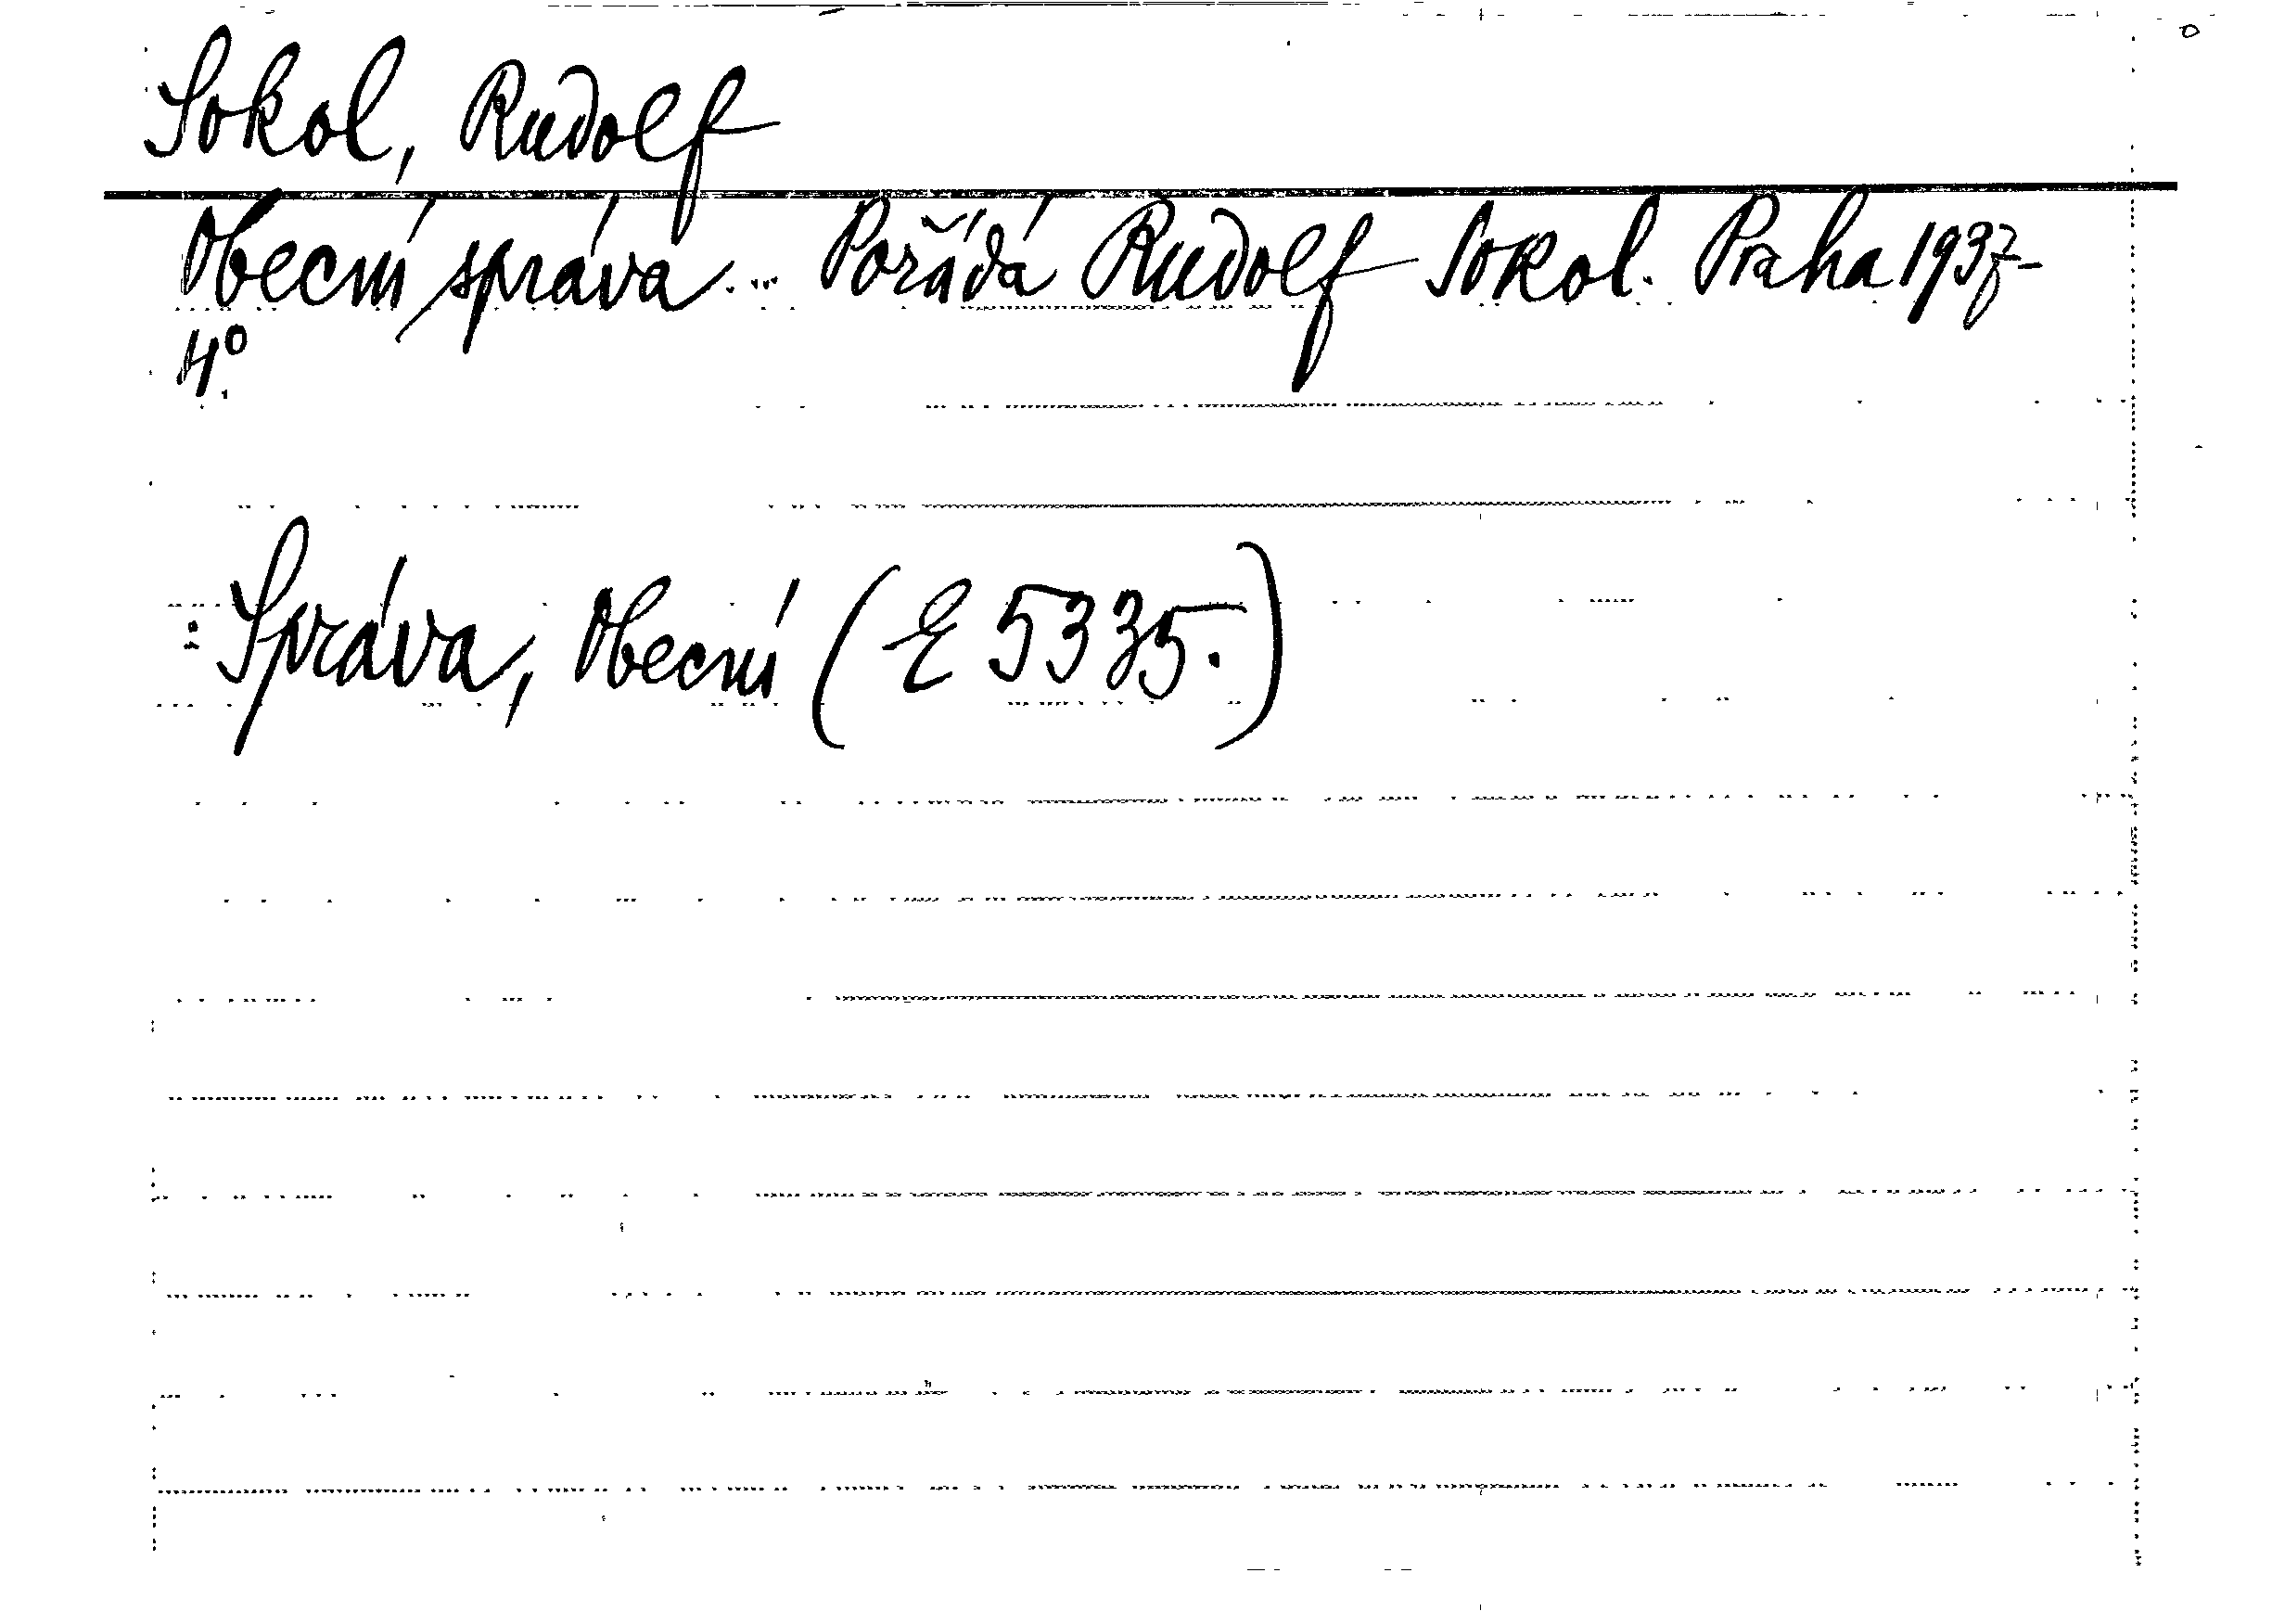 Sokol, Rudolf
Obecní správa... Pořádá Rudolf Sokol. Praha 1937-
4°.
: Správa, Obecní (E 5335.)